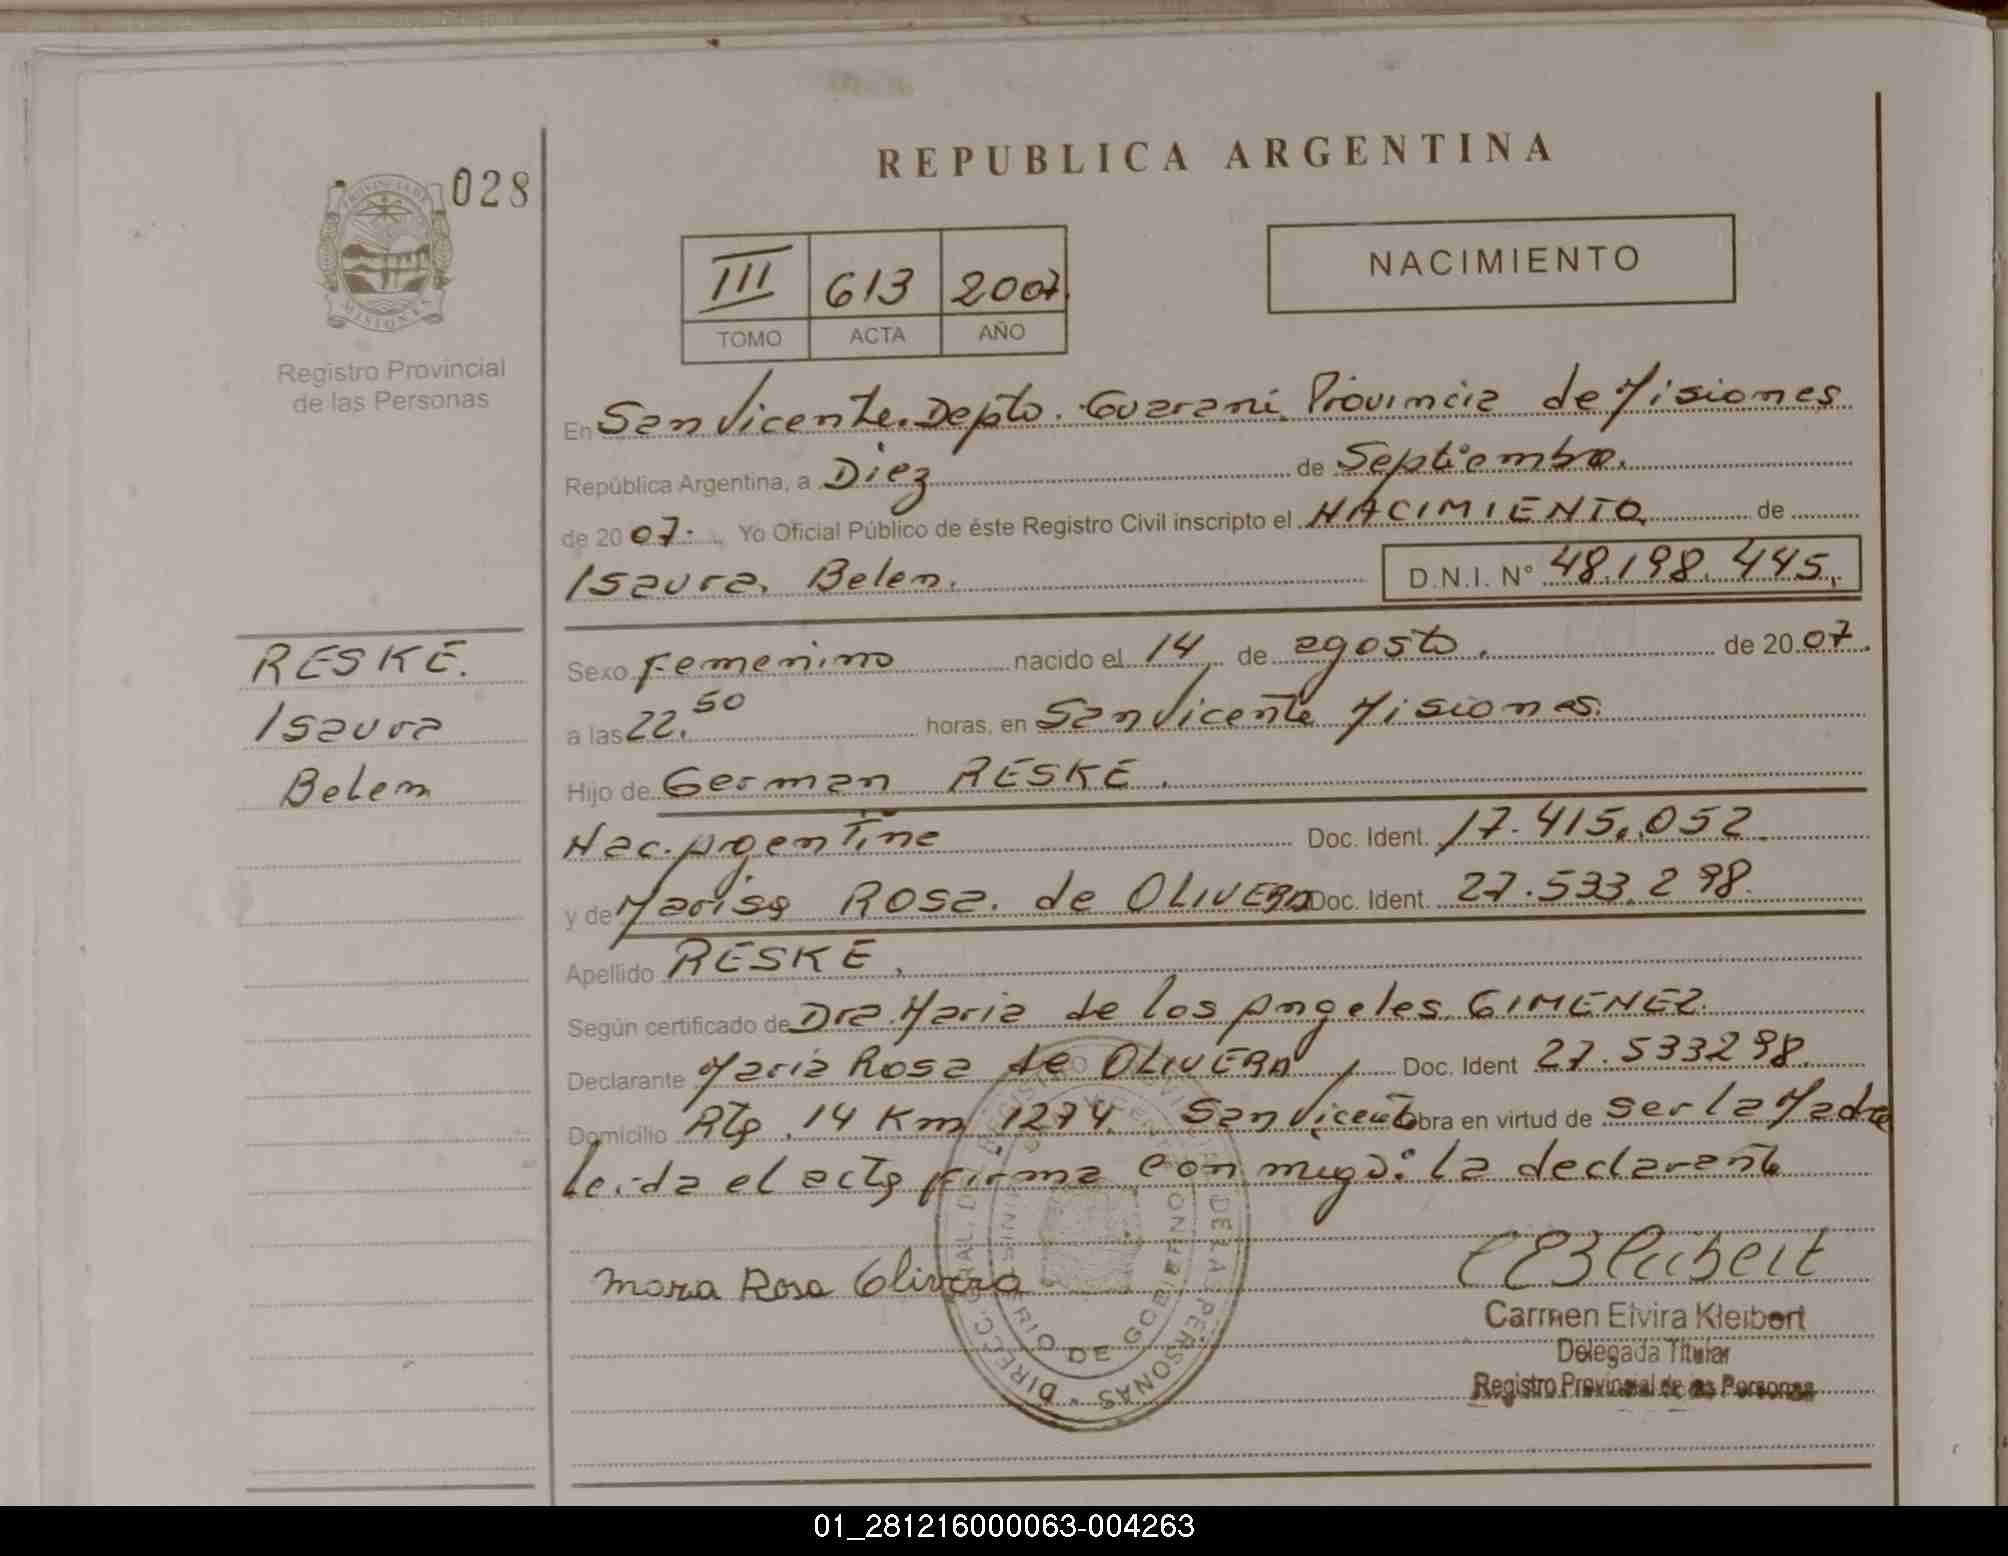 028
REPUBLICA ARGENTINA
PROVINCIA DE
MISIONES
Registro Provincial
de las Personas
III 613 2007
TOMO ACTA AÑO
NACIMIENTO
En San Vicente. Depto. Guarani Provincia de Misiones
República Argentina, a Diez de Septiembre.
de 2007. Yo Oficial Público de éste Registro Civil inscripto el NACIMIENTO de
Isaura, Belen. D.N.I. N° 48.198.445.
RESKE.
Isaura
Belem
Sexo Femenino nacido el 14 de agosto. de 2007.
a las 22.50 horas, en San Vicente Misiones.
Hijo de German RESKE.
Nac. Argentina Doc. Ident. 17.415.052.
y de Marisa Rosa. de OLIVERA Doc. Ident. 27.533.298.
Apellido RESKE.
Según certificado de Dra. Maria de los Angeles GIMENEZ.
Declarante Maria Rosa de OLIVERA Doc. Ident 27.533298.
Domicilio Rta. 14 Km 1274. San Vicente obra en virtud de ser la Madre
leida el acta firma con migo: la declarante
Mora Rosa Olivera
DIRECC. GRAL. DEL REGISTRO DE LAS PERSONAS
MINISTERIO DE GOBIERNO
Carmen Elvira Kleibert
Delegada Titular
Registro Provincial de las Personas
01_281216000063-004263